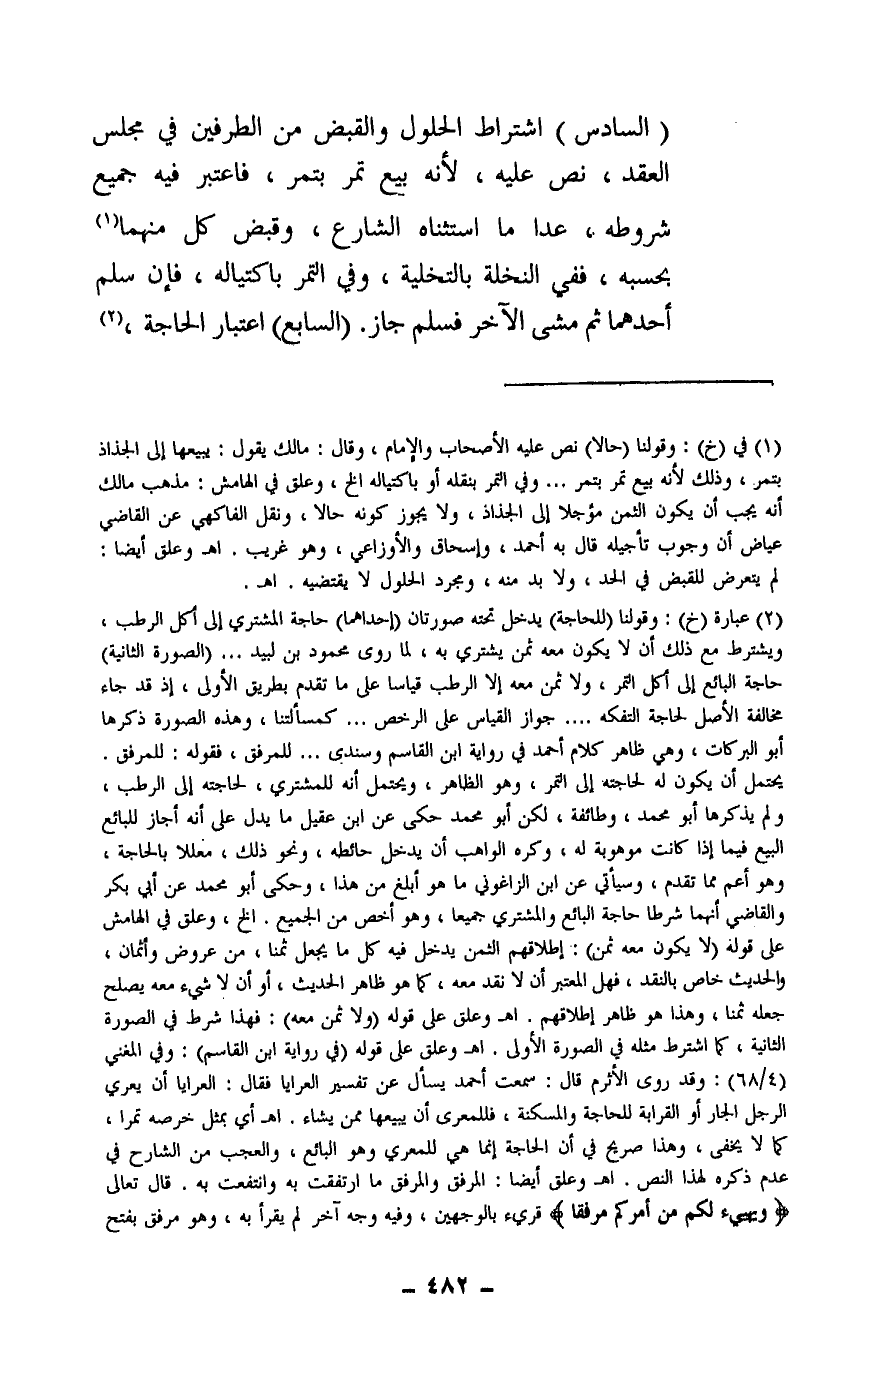 ( السادس ) اشتراط الحلول والقبض من الطرفين في مجلس
العقد ، نص عليه ، لأنه بيع تمر بتمر ، فاعتبر فيه جميع
شروطه ، عدا ما استثناه الشارع ، وقبض كل منهما(١)
بحسبه ، ففي النخلة بالتخلية ، وفي التمر باكتياله ، فإن سلم
أحدهما ثم مشى الآخر فسلم جاز. (السابع) اعتبار الحاجة ،(٢)
(١) في (خ) : وقولنا (حالا) نص عليه الأصحاب والإمام ، وقال : مالك يقول : يبيعها إلى الجذاذ
بتمر ، وذلك لأنه بيع تمر بتمر ... وفي التمر بنقله أو باكتياله الخ ، وعلق في الهامش : مذهب مالك
أنه يجب أن يكون الثمن مؤجلا إلى الجذاذ ، ولا يجوز كونه حالا ، ونقل الفاكهي عن القاضي
عياض أن وجوب تأجيله قال به أحمد ، وإسحاق والأوزاعي ، وهو غريب . اهـ وعلق أيضا :
لم يتعرض للقبض في الحد ، ولا بد منه ، ومجرد الحلول لا يقتضيه . اهـ .
(٢) عبارة (خ) : وقولنا (للحاجة) يدخل تحته صورتان (إحداهما) حاجة المشتري إلى أكل الرطب ،
ويشترط مع ذلك أن لا يكون معه ثمن يشتري به ، لما روى محمود بن لبيد ... (الصورة الثانية)
حاجة البائع إلى أكل التمر ، ولا ثمن معه إلا الرطب قياسا على ما تقدم بطريق الأولى ، إذ قد جاء
مخالفة الأصل لحاجة التفكه .... جواز القياس على الرخص ... كمسألتنا ، وهذه الصورة ذكرها
أبو البركات ، وهي ظاهر كلام أحمد في رواية ابن القاسم وسندى ... للمرفق ، فقوله : للمرفق .
يحتمل أن يكون له لحاجته إلى التمر ، وهو الظاهر ، ويحتمل أنه للمشتري ، لحاجته إلى الرطب ،
ولم يذكرها أبو محمد ، وطائفة ، لكن أبو محمد حكى عن ابن عقيل ما يدل على أنه أجاز للبائع
البيع فيما إذا كانت موهوبة له ، وكره الواهب أن يدخل حائطه ، ونحو ذلك ، معللا بالحاجة ،
وهو أعم مما تقدم ، وسيأتي عن ابن الزاغوني ما هو أبلغ من هذا ، وحكى أبو محمد عن أبي بكر
والقاضي أنهما شرطا حاجة البائع والمشتري جميعا ، وهو أخص من الجميع . الخ ، وعلق في الهامش
على قوله (لا يكون معه ثمن) : إطلاقهم الثمن يدخل فيه كل ما يجعل ثمنا ، من عروض وأثمان ،
والحديث خاص بالنقد ، فهل المعتبر أن لا نقد معه ، كما هو ظاهر الحديث ، أو أن لا شيء معه يصلح
جعله ثمنا ، وهذا هو ظاهر إطلاقهم . اهـ وعلق على قوله (ولا ثمن معه) : فهذا شرط في الصورة
الثانية ، كما اشترط مثله في الصورة الأولى . اهـ وعلق على قوله (في رواية ابن القاسم) : وفي المغني
(٦٨/٤) : وقد روى الأثرم قال : سمعت أحمد يسأل عن تفسير العرايا فقال : العرايا أن يعري
الرجل الجار أو القرابة للحاجة والمسكنة ، فللمعرى أن يبيعها ممن يشاء . اهـ أي بمثل خرصه تمرا ،
كما لا يخفى ، وهذا صريح في أن الحاجة إنما هي للمعري وهو البائع ، والعجب من الشارح في
عدم ذكره لهذا النص . اهـ وعلق أيضا : المرفق والمرفق ما ارتفقت به وانتفعت به . قال تعالى
﴿ ويهييء لكم من أمركم مرفقا ﴾ قريء بالوجهين ، وفيه وجه آخر لم يقرأ به ، وهو مرفق بفتح
– ٤٨٢ –